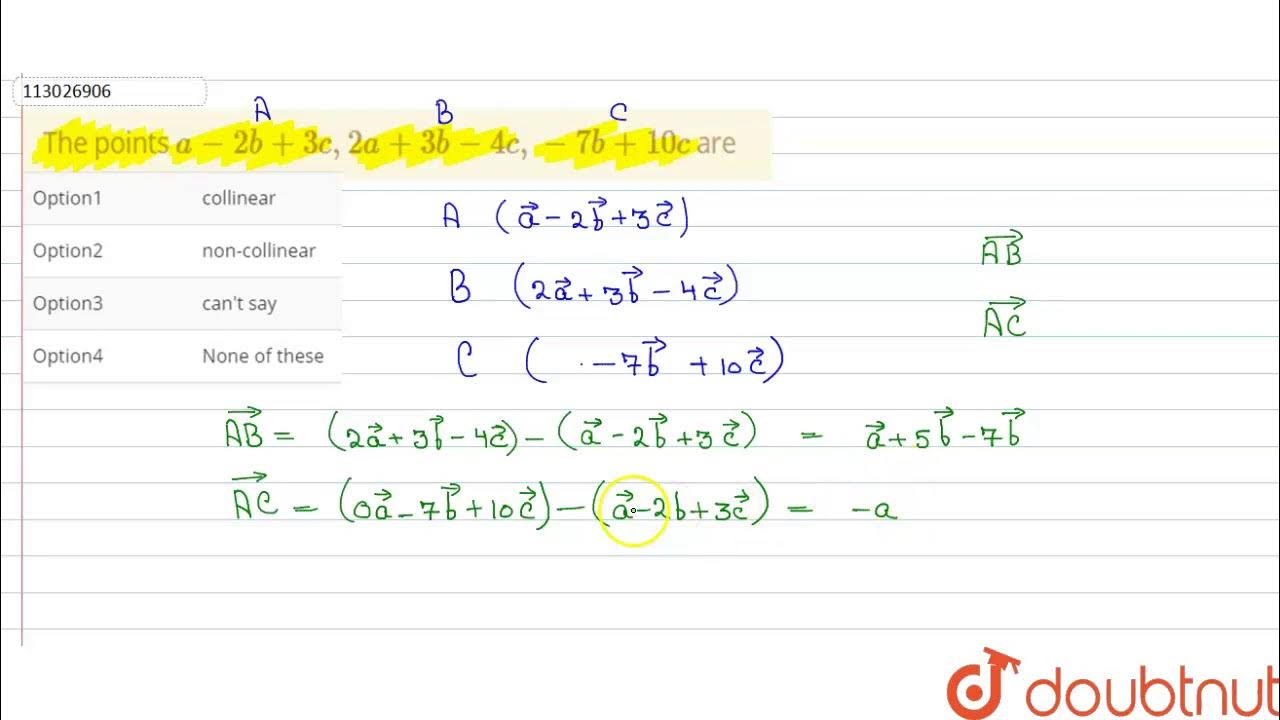 113026906
A B C
The points a − 2b + 3c, 2a + 3b − 4c, − 7b + 10c are
Option1 collinear
Option2 non-collinear
Option3 can't say
Option4 None of these
A (a⃗ − 2b⃗ + 3c⃗)
B (2a⃗ + 3b⃗ − 4c⃗)
C ( · − 7b⃗ + 10c⃗)
AB⃗
AC⃗
AB⃗ = (2a⃗ + 3b⃗ − 4c⃗) − (a⃗ − 2b⃗ + 3c⃗) = a⃗ + 5b⃗ − 7b⃗
AC⃗ = (0a⃗ − 7b⃗ + 10c⃗) − (a⃗ − 2b + 3c⃗) = −a
doubtnut